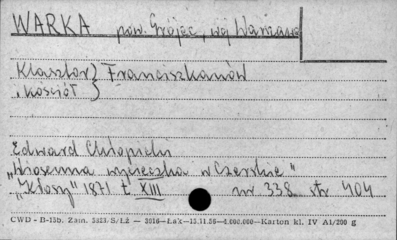 WARKA pow. Grójec, woj Warszawa
Klasztor } Franciszkanów
i kościół }
Edward Chłopicki
"Wiosenna wycieczka w Czerskie"
"Kłosy" 1871 t XIII nr 338 str 404
CWD - D-13b. Zam. S/Łż — 3016—Łak—15.11.56—4.000.000—Karton kl. IV A1/200 g